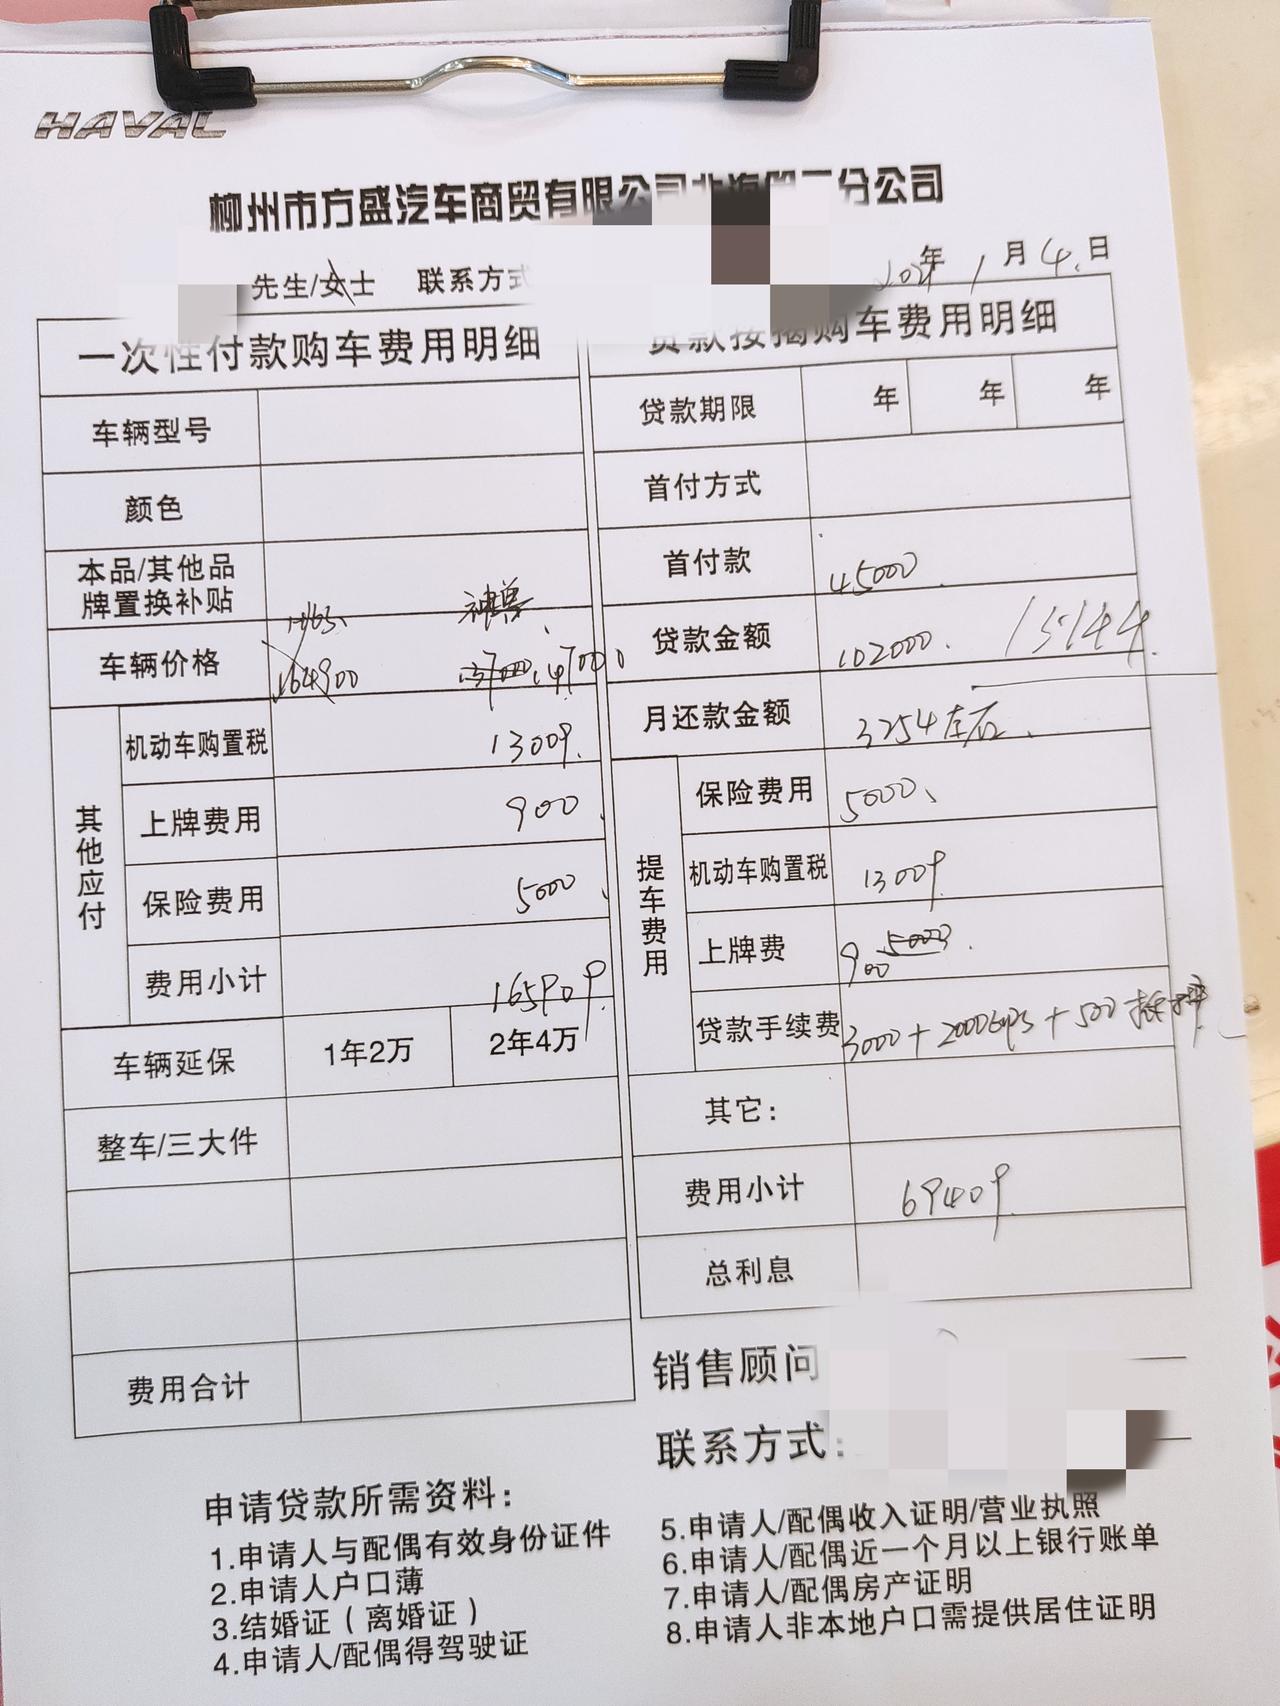 HAVAL
柳州市方盛汽车商贸有限公司 分公司
先生/女士 联系方式
年1月4日
一次性付款购车费用明细
车辆型号
颜色
本品/其他品
牌置换补贴
神兽
车辆价格 164900 147000
其他应付
机动车购置税 13009
上牌费用 900
保险费用 5000
费用小计 165909
车辆延保 1年2万 2年4万
整车/三大件
费用合计
贷款按揭购车费用明细
贷款期限 年 年 年
首付方式
首付款 45000
贷款金额 102000 15144
月还款金额 3254左右
提车费用
保险费用 5000
机动车购置税 13009
上牌费 900 5000
贷款手续费 3000+2000GPS+500抵押
其它:
费用小计 69409
总利息
销售顾问
联系方式:
申请贷款所需资料:
1.申请人与配偶有效身份证件
2.申请人户口薄
3.结婚证(离婚证)
4.申请人/配偶得驾驶证
5.申请人/配偶收入证明/营业执照
6.申请人/配偶近一个月以上银行账单
7.申请人/配偶房产证明
8.申请人非本地户口需提供居住证明